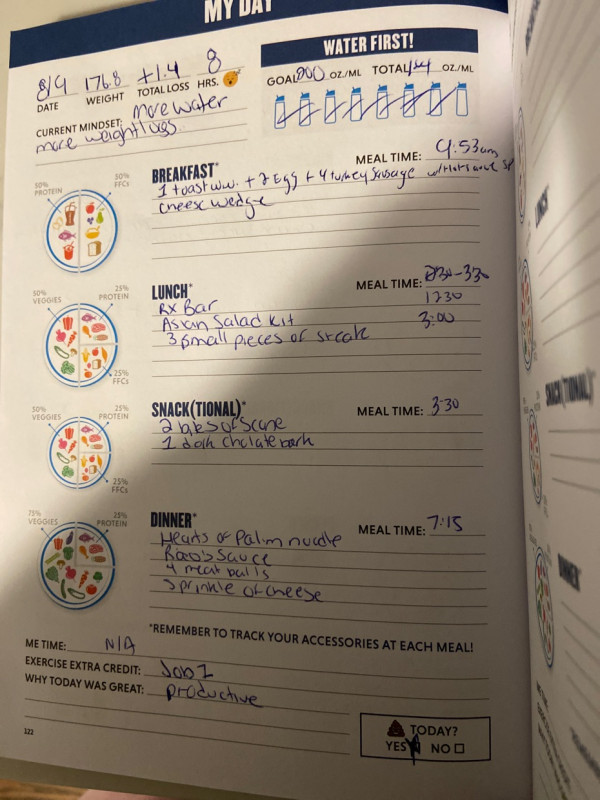 MY DAY
8/9 176.8 +1.4 8
DATE WEIGHT TOTAL LOSS HRS.
CURRENT MINDSET: More water
more weight loss
WATER FIRST!
GOAL 200 OZ./ML TOTAL 184 OZ./ML
50% PROTEIN
50% FFCs
BREAKFAST*
MEAL TIME: 9:53am
1 toast w.w. + 2 Egg + 4 turkey Sausage
cheese wedge
50% VEGGIES
25% PROTEIN
25% FFCs
LUNCH*
MEAL TIME: 230-330
RX Bar 1230
Asian Salad Kit 3:00
3 small pieces of steak
50% VEGGIES
25% PROTEIN
25% FFCs
SNACK(TIONAL)*
MEAL TIME: 3:30
2 bites of Scone
1 dark chclate bark
75% VEGGIES
25% PROTEIN
DINNER*
MEAL TIME: 7:15
Hearts of Palm noodle
Rao's Sauce
4 meat balls
Sprinkle of cheese
*REMEMBER TO TRACK YOUR ACCESSORIES AT EACH MEAL!
ME TIME: N/A
EXERCISE EXTRA CREDIT: Job 1
WHY TODAY WAS GREAT: productive
TODAY?
YES NO
122
LUNCH*
SNACK(TIONAL)*
DINNER*